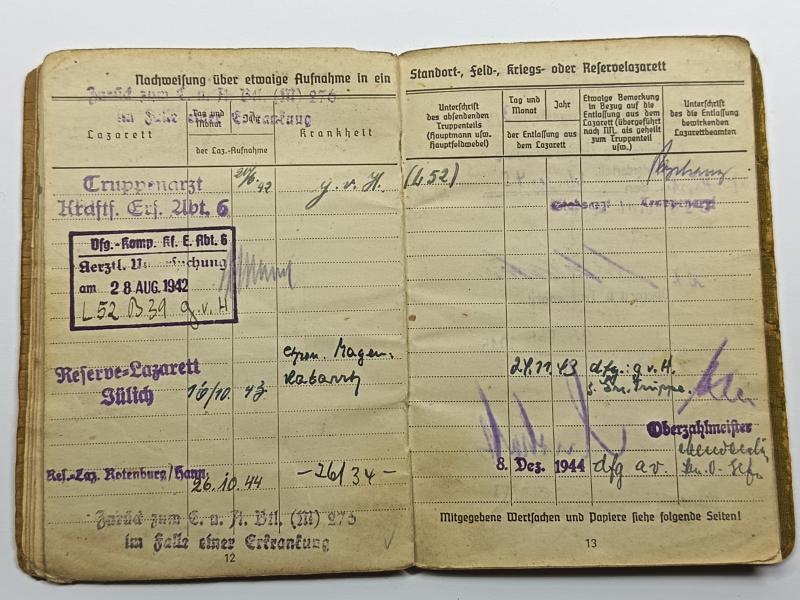 Nachweisung über etwaige Aufnahme in ein
Zurück zum E. u. A. Btl. (M)
im Falle einer Erkrankung
Lazarett
Tag und Monat
Jahr
der Laz.-Aufnahme
Krankheit
Truppenarzt
Kraftf. Ers. Abt. 6
20/6. 42
g. v. H.
Vfg.-Komp. Kf. E. Abt. 6
Aerztl. Untersuchung
am 28 AUG. 1942
L 52 B 39 g. v. H
Reserve-Lazarett
Jülich
16/10. 43
chron. Magen-
katarrh
Res.-Laz. Rotenburg/Hann.
26.10.44
– 26/34 –
Zurück zum E. u. A. Btl. (M) 273
im Falle einer Erkrankung
12
Standort-, Feld-, Kriegs- oder Reservelazarett
Unterschrift
des absendenden
Truppenteils
(Hauptmann usw.
Hauptfeldwebel)
Tag und
Monat
Jahr
der Entlassung aus
dem Lazarett
Etwaige Bemerkung
in Bezug auf die
Entlassung aus dem
Lazarett (übergeführt
nach NN. als geheilt
zum Truppenteil
usw.)
Unterschrift
des die Entlassung
bewirkenden
Lazarettbeamten
(L 52)
Stabsarzt Truppenarzt
24.11. 43
dfg.: g. v. H.
z. Truppe.
Oberzahlmeister
8. Dez. 1944
dfg a v.
Mitgegebene Wertsachen und Papiere siehe folgende Seiten!
13